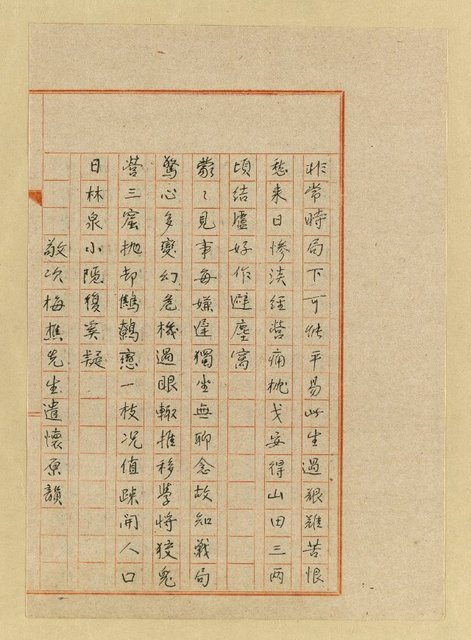 非常時局下可能平易此生過艱難苦恨
愁来日慘淡經營痛枕戈安得山田三兩
頃結廬好作避塵窩
蒙〻見事每嫌遲獨坐無聊念故知戰局
驚心多變幻危機過眼輙推移學將狡兔
營三窟拋却鷦鷯戀一枝况值疎開人口
日林泉小隱復奚疑
敬次梅樵先生遣懷原韻